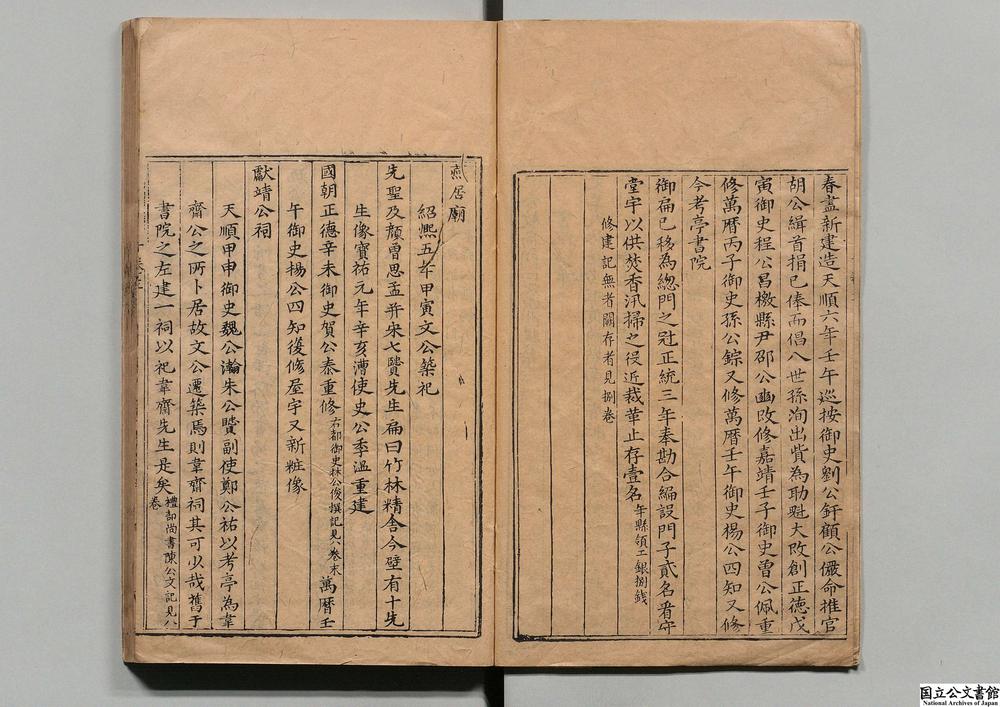 春盡新建造天順六年壬午巡按御史劉公釬顧公儼命推官
胡公緝首捐已俸而倡八世孫洵出貲為助魁大改創正德戊
寅御史程公昌檄縣尹邵公豳改修嘉靖壬子御史曾公佩重
修萬曆丙子御史孫公錝又修萬曆壬午御史楊公四知又修
今考亭書院
御扁已移為總門之冠正統三年奉勘合編設門子貳名看守
堂宇以供焚香汛掃之役近裁革止存壹名年縣領工銀捌錢
修建記無者闕存者見捌卷
燕居廟
紹熙五年甲寅文公築祀
先聖及顏曽思孟并宋七賢先生扁曰竹林精舍今壁有十先
生像寶祐元年辛亥漕使史公季溫重建
國朝正德辛未御史賀公泰重修右都御史林公俊撰記見八卷末萬曆壬
午御史楊公四知後修屋宇又新粧像
獻靖公祠
天順甲申御史魏公瀚朱公賢副使鄭公祐以考亭為韋
齋公之所卜居故文公遷築焉則韋齋祠其可少哉舊于
書院之左建一祠以祀韋齋先生是矣禮部尚書陳公文記見八卷
国立公文書館
National Archives of Japan